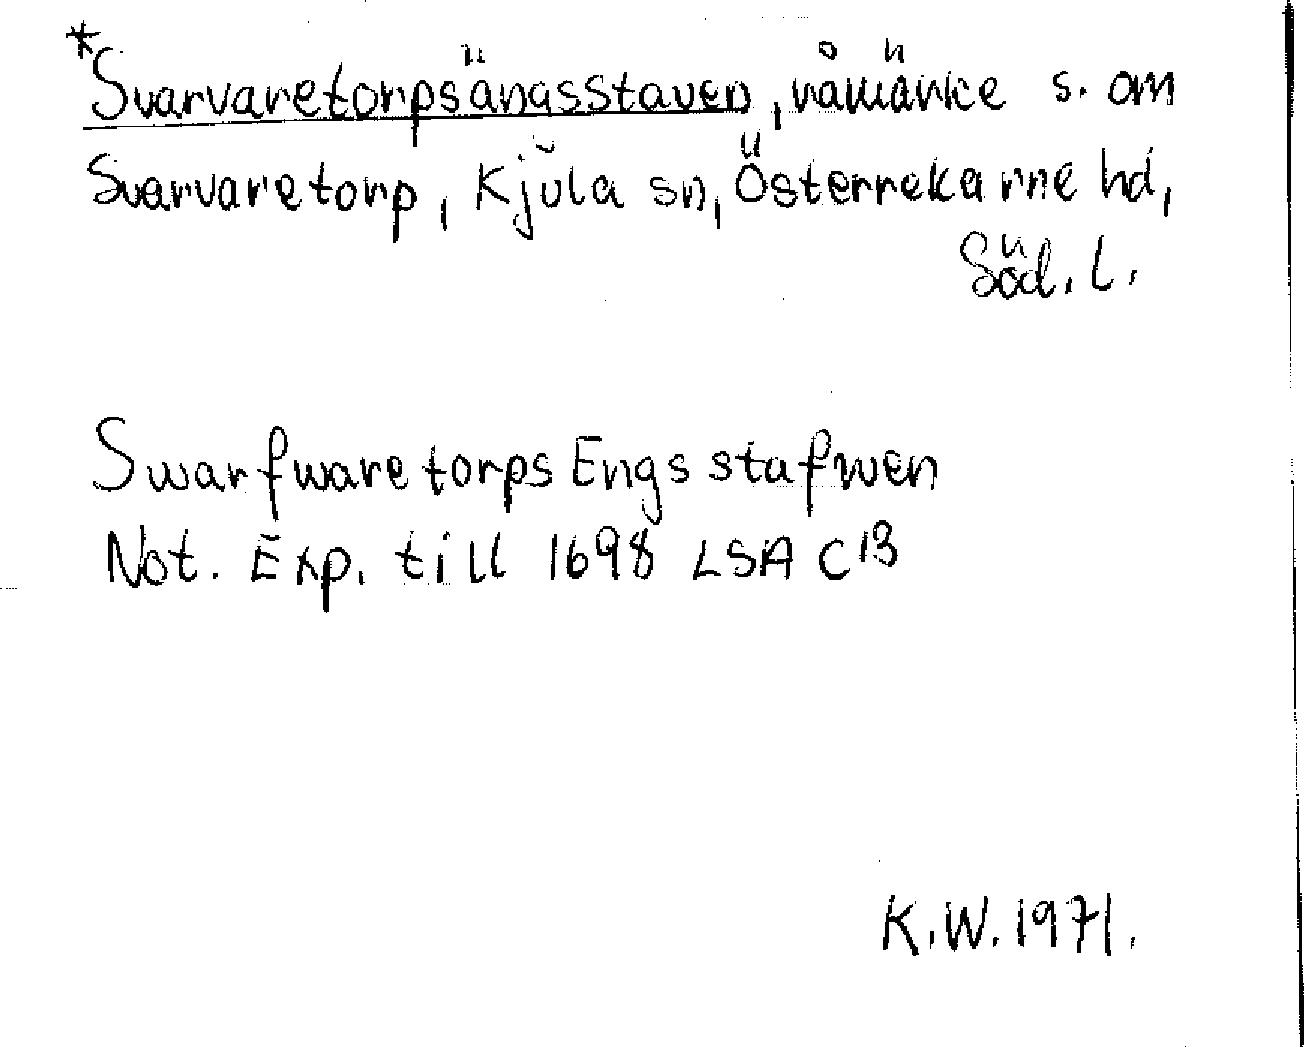 *Svarvaretorpsängsstaven, råmärke s. om
Svarvaretorp, Kjula sn, Österrekarne hd,
Söd. l.
Swarfwaretorps Engsstafwen
Not. Exp. till 1698 LSA C13
K.W. 1971.